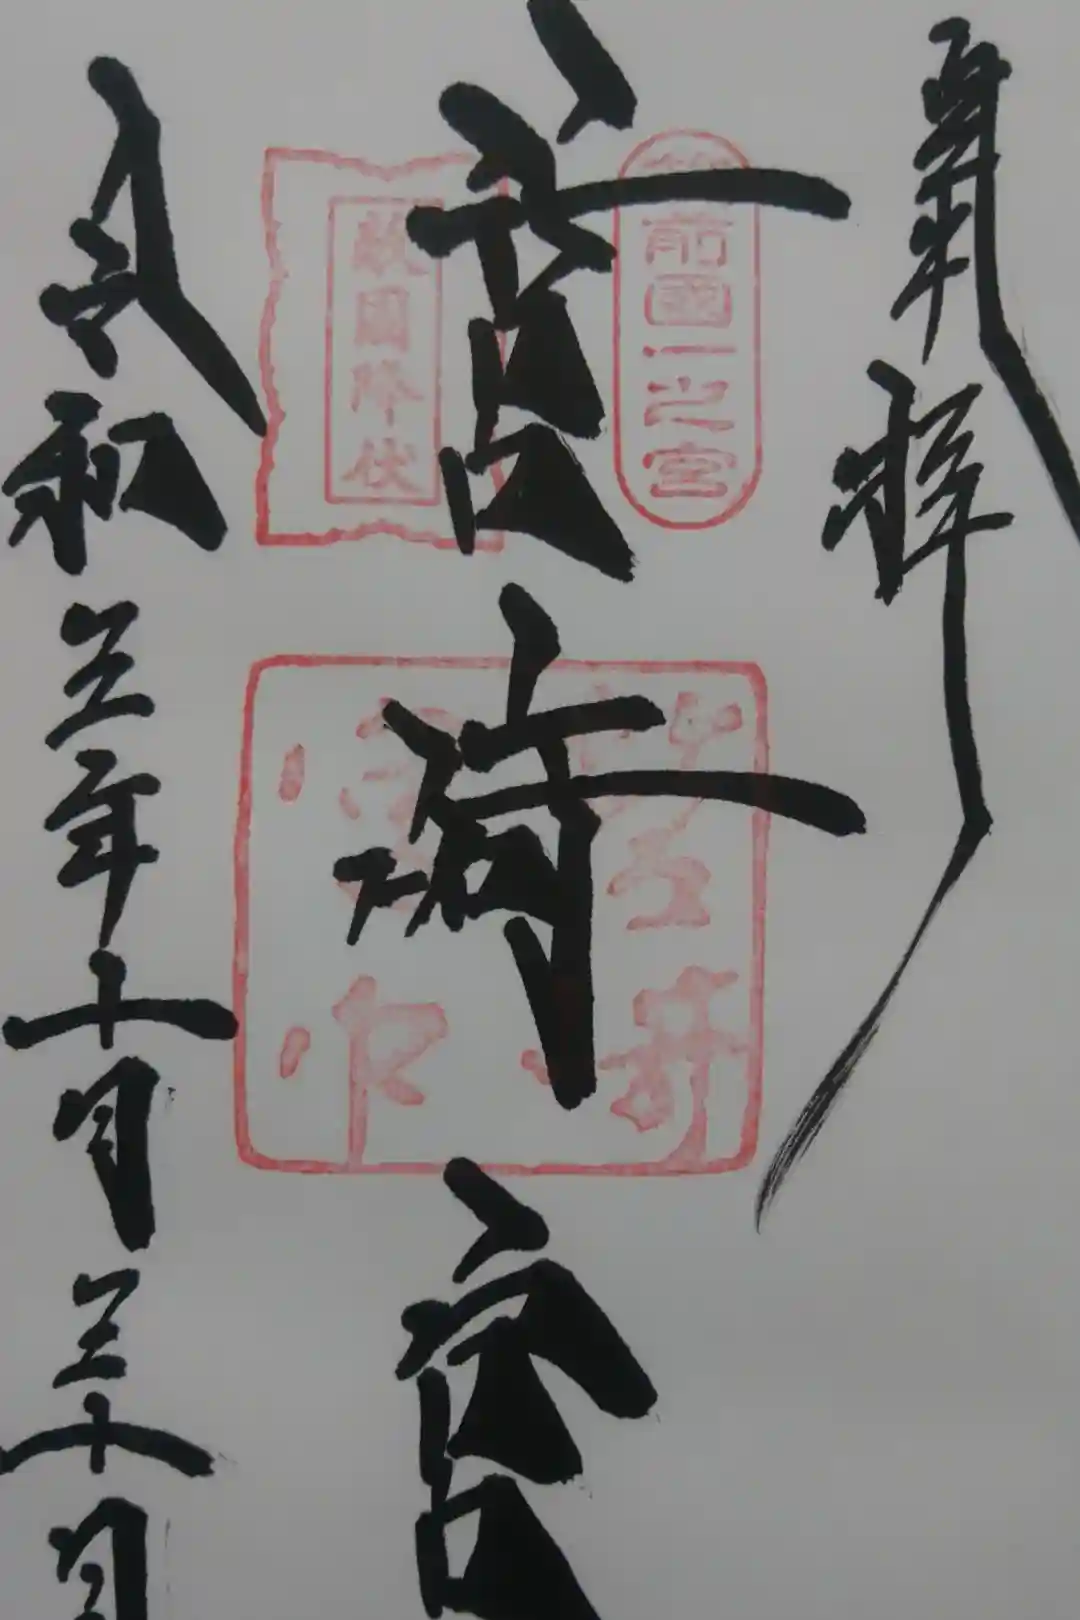 奉拝
筥崎宮
筑前國一之宮
敵國降伏
筥崎宮
令和三年十月三十日